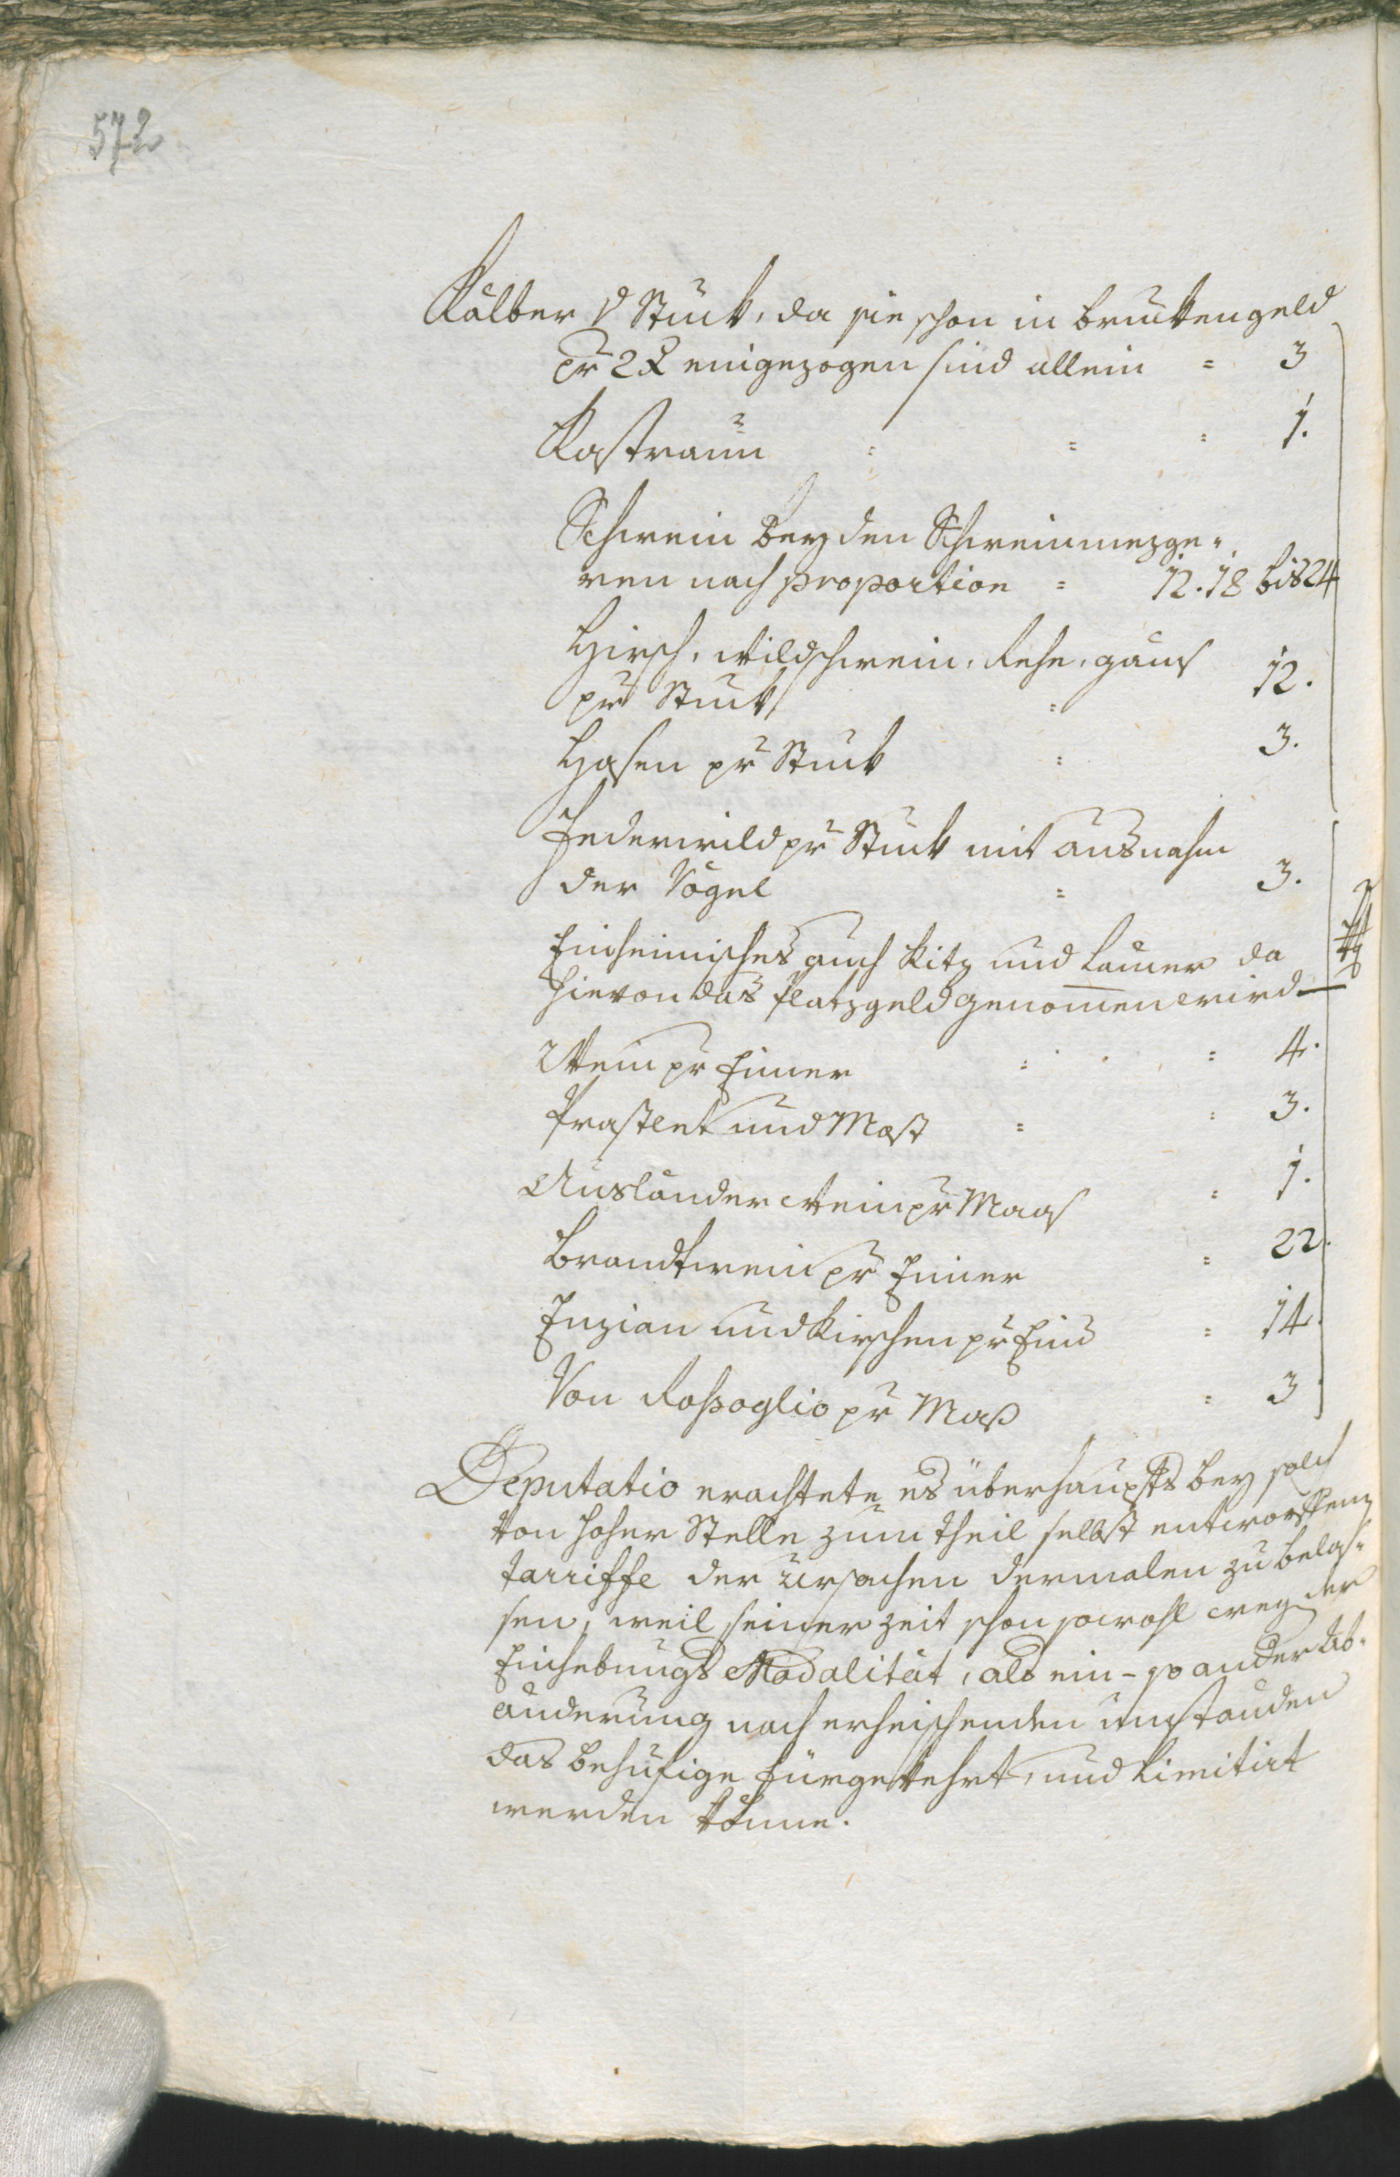 572
Kälber d Stuck, da sie schon in bruckengeld
pr 2 x eingezogen sind allein = 3
Kastraun = = = 1.
Schwein bey den Schweinmezge-
ren nach proportion = 12. 18 bis 24
Hirsch, wildschwein, Rehe, gäms
pr Stuck = 12.
Hasen pr Stuck = 3.
Federwild pr Stuck mit ausnahm
der Vögel = 3.
Einheimisches auch Kitz und Lämer da
hievon das Platzgeld genomen wird —
Wein pr Eimer = = 4.
Praßlet und Most = = 3.
Ausländer Wein pr Maas = 1.
Brandtwein pr Eimer = 22.
Enzian und Kirschen pr Eim = 14.
Von Roßoglio pr Maß = 3
Deputatio erachtete es überhaupts bey solch
von hoher Stelle zum theil selbst entworffenen
tarriffe der Ursachen dermalen zu belas-
sen, weil seiner Zeit schon sowohl weg der
Einhebungs Modalität, als ein- so ander Ab-
änderung nach erheischenden umständen
das behufige fürgekehrt, und limitirt
werden könne.